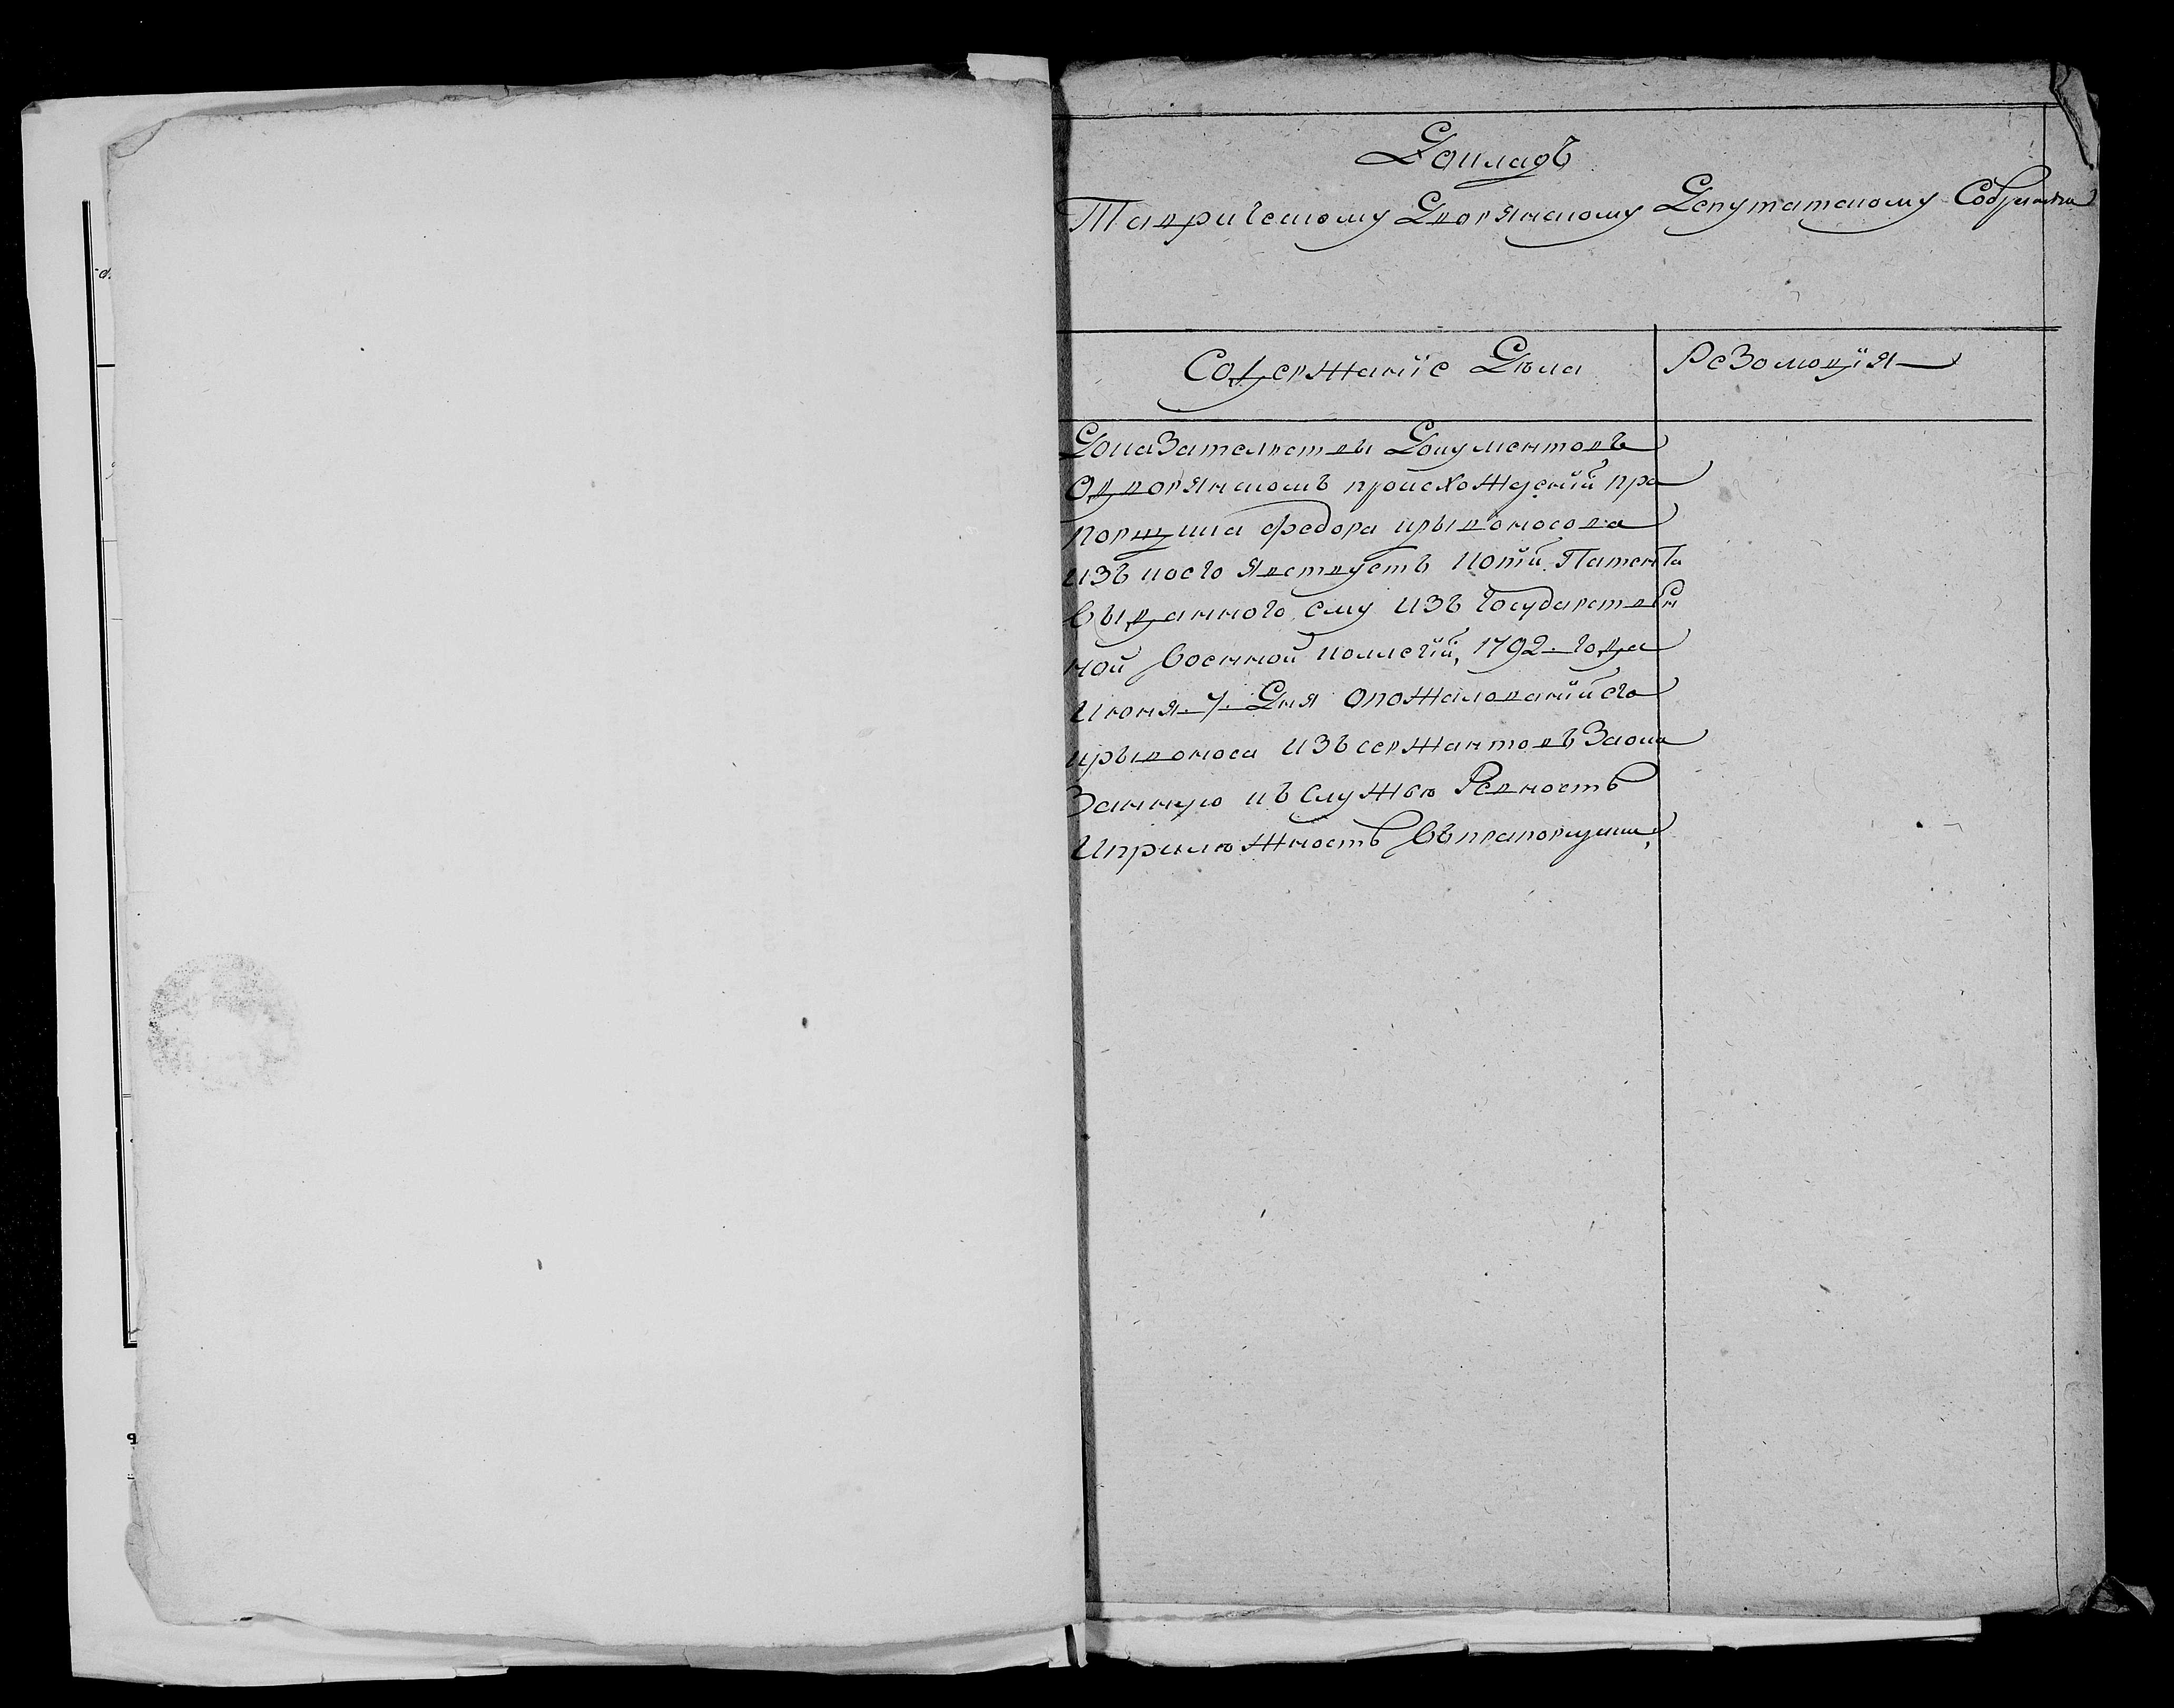 Докладъ
Таврическому Дворянскому Депутатскому Собранию
Содержаніе Дѣла
Резолюцїя
Доказателство Документовъ
Одворянскомъ происхожденїй пра
порщика федора крывоносова
изъ коего явствуетъ копїй Патента
Выданного ему изъ Государствен
ной Военной коллегїй, 1792. года
Июня. 7. Дня опожалованїй его
крывоноса изъ сержантовъ Заока
Занную къ службѣ Ревность
Иприлѣжность Въпрапорщики,